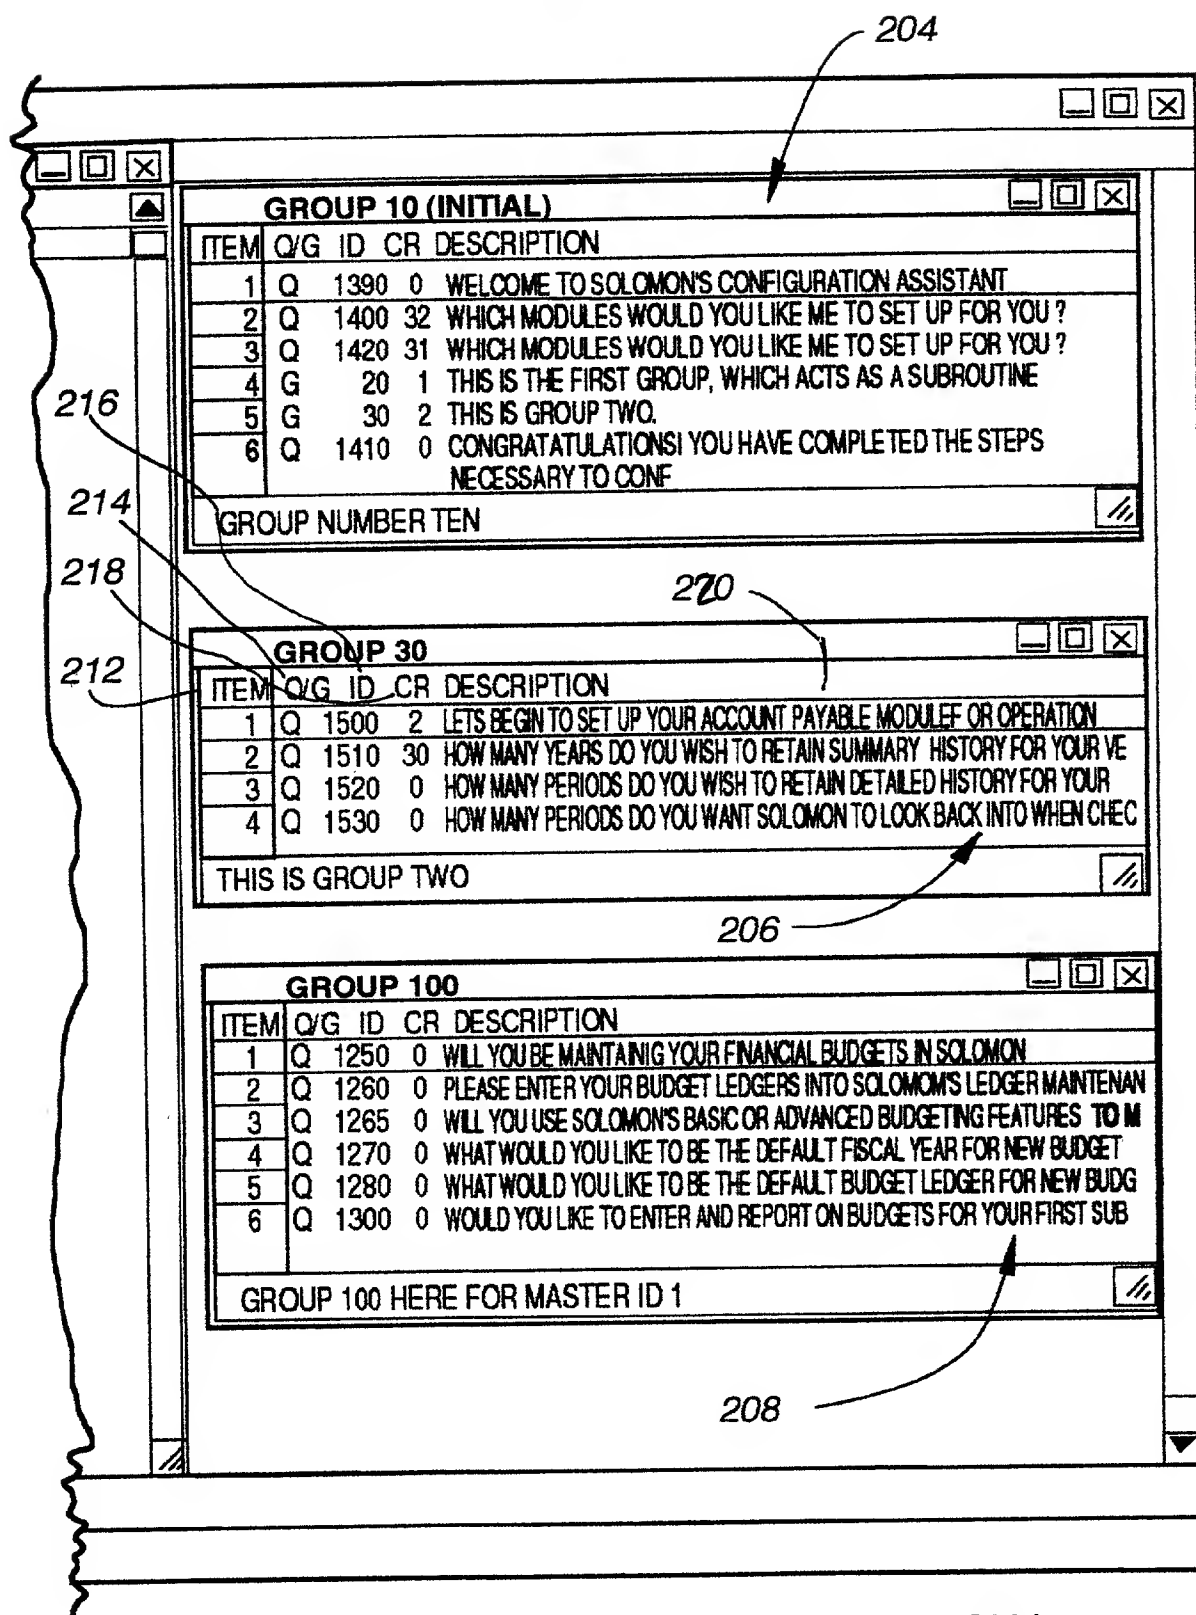 204
GROUP 10 (INITIAL)
ITEM Q/G ID CR DESCRIPTION
1 Q 1390 0 WELCOME TO SOLOMON'S CONFIGURATION ASSISTANT
2 Q 1400 32 WHICH MODULES WOULD YOU LIKE ME TO SET UP FOR YOU ?
3 Q 1420 31 WHICH MODULES WOULD YOU LIKE ME TO SET UP FOR YOU ?
4 G 20 1 THIS IS THE FIRST GROUP, WHICH ACTS AS A SUBROUTINE
5 G 30 2 THIS IS GROUP TWO.
6 Q 1410 0 CONGRATATULATIONS! YOU HAVE COMPLETED THE STEPS
NECESSARY TO CONF
GROUP NUMBER TEN
216
214
218
212
220
GROUP 30
ITEM Q/G ID CR DESCRIPTION
1 Q 1500 2 LETS BEGIN TO SET UP YOUR ACCOUNT PAYABLE MODULEF OR OPERATION
2 Q 1510 30 HOW MANY YEARS DO YOU WISH TO RETAIN SUMMARY HISTORY FOR YOUR VE
3 Q 1520 0 HOW MANY PERIODS DO YOU WISH TO RETAIN DETAILED HISTORY FOR YOUR
4 Q 1530 0 HOW MANY PERIODS DO YOU WANT SOLOMON TO LOOK BACK INTO WHEN CHEC
THIS IS GROUP TWO
206
GROUP 100
ITEM Q/G ID CR DESCRIPTION
1 Q 1250 0 WILL YOU BE MAINTAINIG YOUR FINANCIAL BUDGETS IN SOLOMON
2 Q 1260 0 PLEASE ENTER YOUR BUDGET LEDGERS INTO SOLOMOM'S LEDGER MAINTENAN
3 Q 1265 0 WILL YOU USE SOLOMON'S BASIC OR ADVANCED BUDGETING FEATURES TO M
4 Q 1270 0 WHAT WOULD YOU LIKE TO BE THE DEFAULT FISCAL YEAR FOR NEW BUDGET
5 Q 1280 0 WHAT WOULD YOU LIKE TO BE THE DEFAULT BUDGET LEDGER FOR NEW BUDG
6 Q 1300 0 WOULD YOU LIKE TO ENTER AND REPORT ON BUDGETS FOR YOUR FIRST SUB
GROUP 100 HERE FOR MASTER ID 1
208